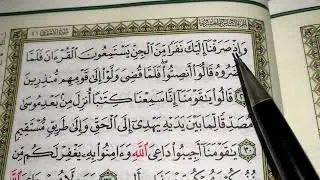 وَإِذْ صَرَفْنَا إِلَيْكَ نَفَرًا مِنَ الْجِنِّ يَسْتَمِعُونَ الْقُرْءَانَ فَلَمَّا
حَضَرُوهُ قَالُوا أَنْصِتُوا فَلَمَّا قُضِيَ وَلَّوْا إِلَى قَوْمِهِمْ مُنْذِرِينَ
قَالُوا يَاقَوْمَنَا إِنَّا سَمِعْنَا كِتَابًا أُنْزِلَ مِنْ بَعْدِ مُوسَى
مُصَدِّقًا لِمَا بَيْنَ يَدَيْهِ يَهْدِي إِلَى الْحَقِّ وَإِلَى طَرِيقٍ مُسْتَقِيمٍ
٣٠ يَاقَوْمَنَا أَجِيبُوا دَاعِيَ اللَّهِ وَءَامِنُوا بِهِ يَغْفِرْ لَكُمْ مِنْ